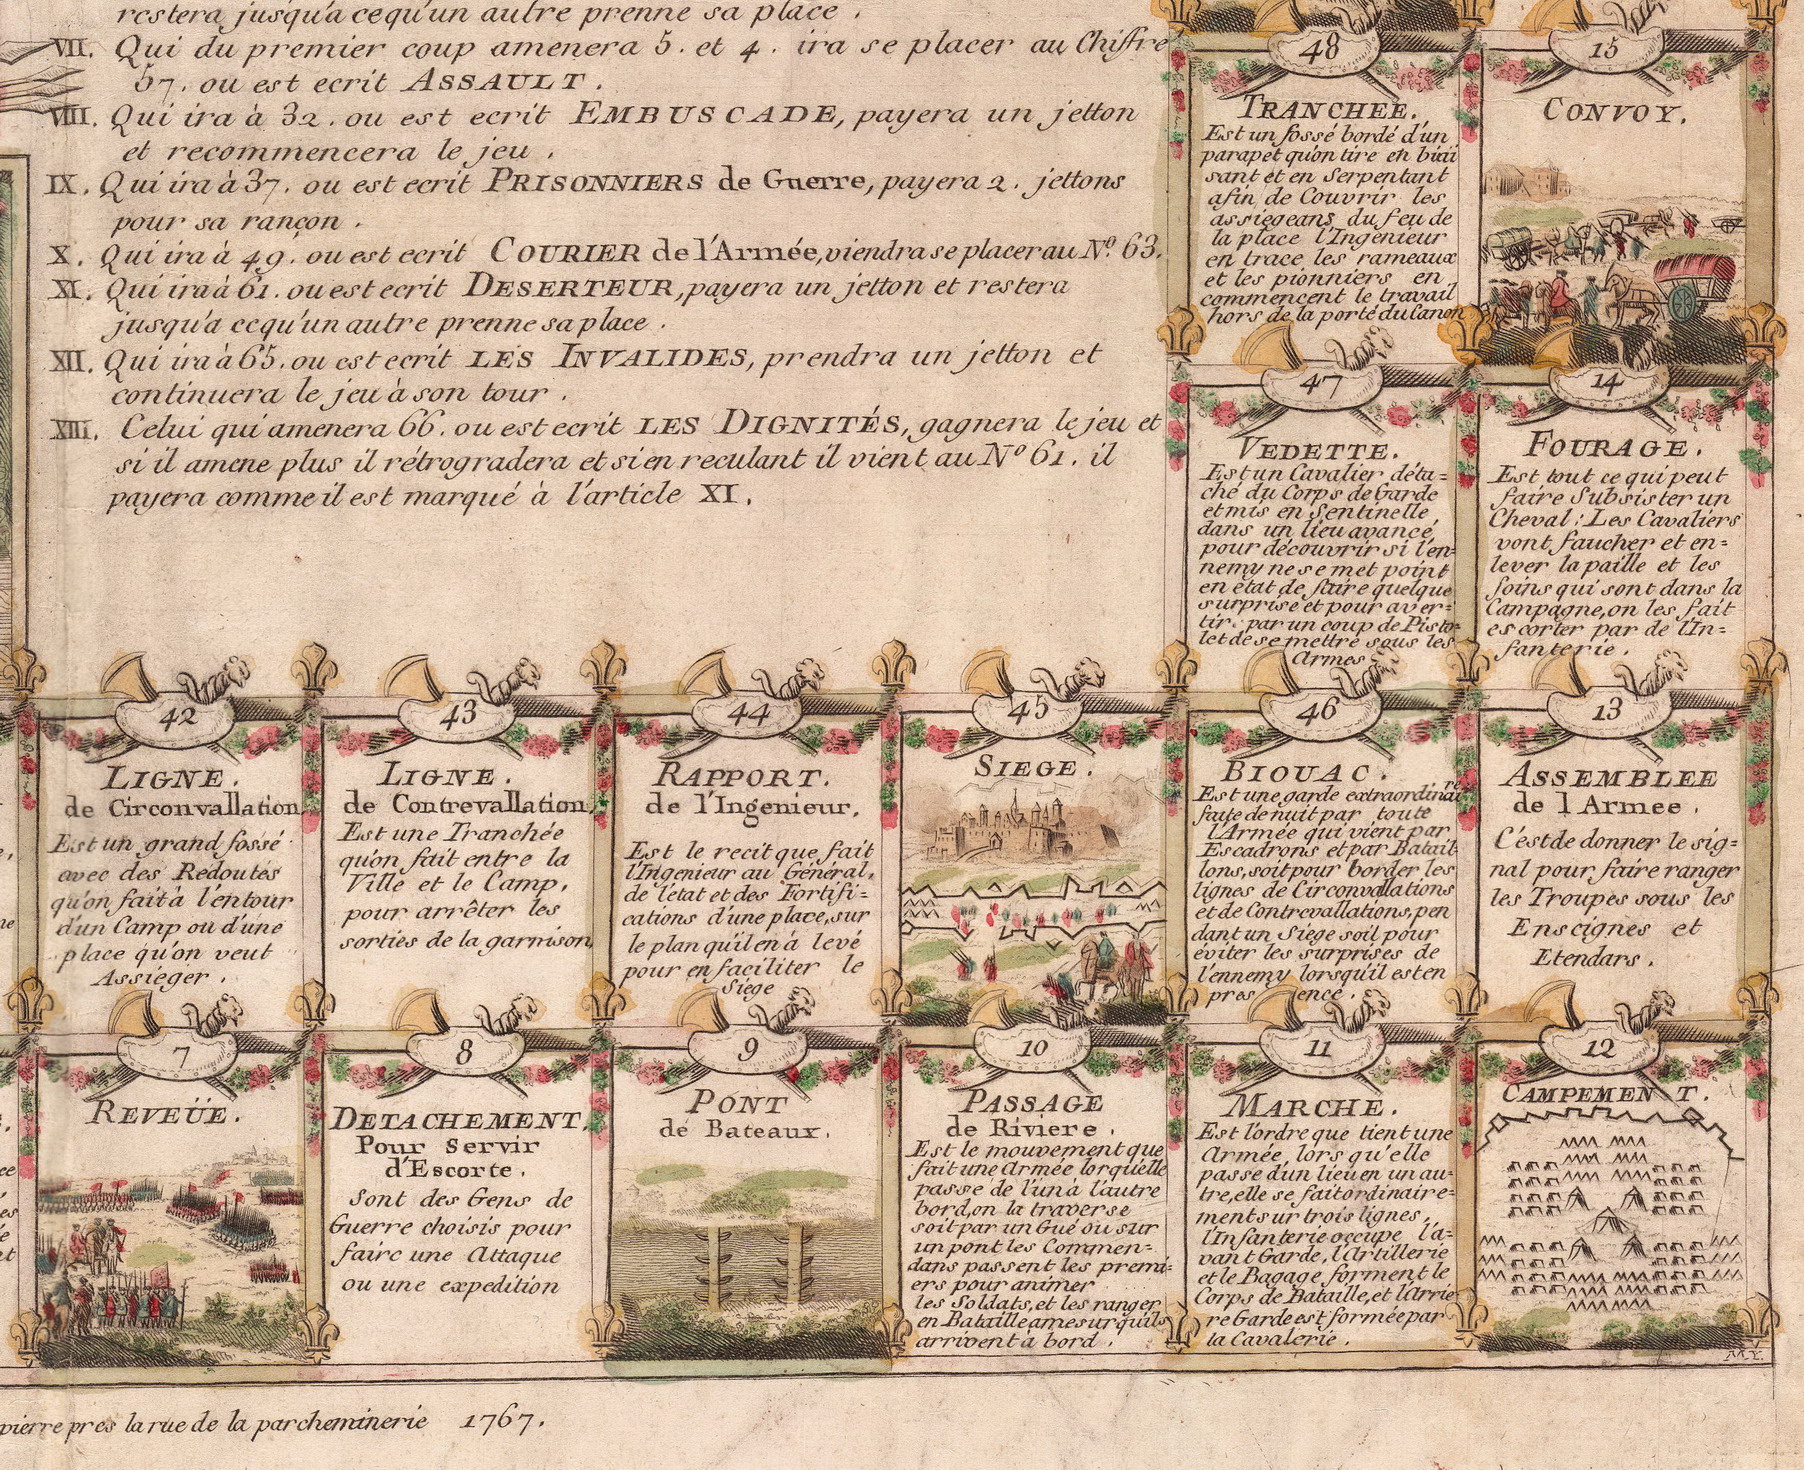 restera jusqu'a ce qu'un autre prenne sa place .
VII. Qui du premier coup amenera 5. et 4. ira se placer au Chiffre
57. ou est ecrit ASSAULT.
VIII. Qui ira à 32. ou est ecrit EMBUSCADE, payera un jetton
et recommencera le jeu .
IX. Qui ira à 37. ou est ecrit PRISONNIERS de Guerre, payera 2. jettons
pour sa rançon .
X. Qui ira à 49. ou est ecrit COURIER de l'Armée, viendra se placer au No. 63.
XI. Qui ira à 61. ou est ecrit DESERTEUR, payera un jetton et restera
jusqu'a cequ'un autre prenne sa place .
XII. Qui ira à 65. ou est ecrit LES INVALIDES, prendra un jetton et
continuera le jeu à son tour .
XIII. Celui qui amenera 66. ou est ecrit LES DIGNITÉS, gagnera le jeu et
si il amene plus il rétrogradera et si en reculant il vient au No 61. il
payera comme il est marqué à l'article XI.
48
TRANCHÉE.
Est un fossé bordé d'un
parapet qu'on tire en biai
sant et en Serpentant
afin de Couvrir les
assiegeans du feu de
la place l'Ingenieur
en trace les rameaux
et les pionniers en
commencent le travail
hors de la porté du Canon
15
CONVOY.
47
VEDETTE.
Est un Cavalier déta=
ché du Corps de Garde
et mis en Sentinelle
dans un lieu avancé
pour découvrir si l'en=
nemy ne se met point
en état de faire quelque
surprise et pour aver=
tir par un coup de Pisto=
let de se mettre sous les
Armes.
14
FOURAGE.
Est tout ce qui peut
faire Subsister un
Cheval: Les Cavaliers
vont faucher et en=
lever la paille et les
foins qui sont dans la
Campagne, on les fait
escorter par de l'In=
fanterie.
42
LIGNE.
de Circonvallation
Est un grand fossé
avec des Redoutés
qu'on fait à l'entour
d'un Camp ou d'une
place qu'on veut
Assieger .
43
LIGNE.
de Contrevallation.
Est une Tranchée
qu'on fait entre la
Ville et le Camp,
pour arrêter les
sorties de la garnison
44
RAPPORT.
de l'Ingenieur.
Est le recit que fait
l'Ingenieur au Général,
de l'état et des Fortifi=
cations d'une place, sur
le plan qu'il en à levé
pour en faciliter le
Siege
45
SIEGE.
46
BIOUAC.
Est une garde extraordinai
faite de nuit par toute
l'Armée qui vient par
Escadrons et par Batail
lons, soit pour border les
lignes de Circonvallations
et de Contrevallations, pen
dant un Siege soit pour
éviter les surprises de
l'ennemy lorsqu'il est en
presence.
13
ASSEMBLEE
de l Armee .
C'est de donner le sig=
nal pour faire ranger
les Troupes sous les
Enseignes et
Etendars .
7
REVEÜE.
8
DETACHEMENT.
Pour servir
d'Escorte .
Sont des Gens de
Guerre choisis pour
faire une Attaque
ou une expedition
9
PONT
de Bateaux.
10
PASSAGE
de Riviere .
Est le mouvement que
fait une Armée lorqu'elle
passe de l'un à l'autre
bord, on la traverse
soit par un Gué ou sur
un pont les Commen=
dans passent les premi=
ers pour animer
les Soldats, et les ranger
en Bataille amesurqu'ils
arrivent à bord .
11
MARCHE.
Est l'ordre que tient une
Armée, lors qu'elle
passe d'un lieu en un au=
tre, elle se fait ordinaire=
ment sur trois lignes,
l'Infanterie occupe l'a=
vant Garde, l'Artillerie
et le Bagage forment le
Corps de Bataille, et l'arrie
re Garde est formée par
la Cavalerie .
12
CAMPEMENT.
pierre pres la rue de la parcheminerie 1767.